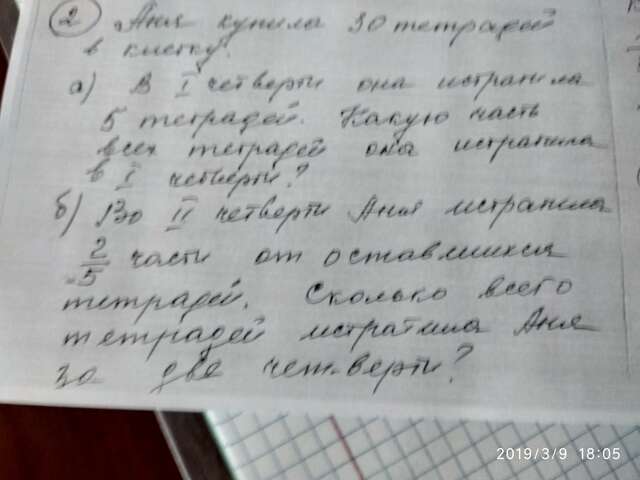 2 Аня купила 30 тетрадей
в клетку.
а) В I четверти она истратила
5 тетрадей. Какую часть
всех тетрадей она истратила
в I четверти?
б) Во II четверти Аня истратила
2/5 части от оставшихся
тетрадей. Сколько всего
тетрадей истратила Аня
за две четверти?
2019/3/9 18:05